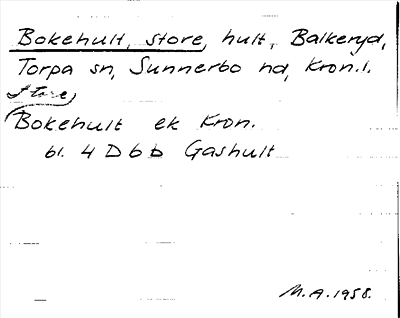 Bokehult, store, hult, Balkeryd,
Torpa sn, Sunnerbo hd, Kron.l.
Store
Bokehult ek Kron.
bl. 4 D b b Gashult
M.A. 1958.